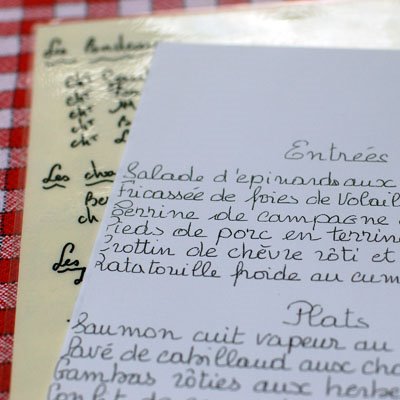 Les Bordeaux
ch
ch
ch
ch
ch
Les cha
Be
ch
Les
Entrées
Salade d'épinards aux
Fricassée de foies de Volail
Terrine de campagne
Pieds de porc en terrine
Crottin de chèvre rôti et
Ratatouille froide au cum
Plats
Saumon cuit vapeur au
Pavé de cabillaud aux cha
Gambas rôties aux herbe
Confit de